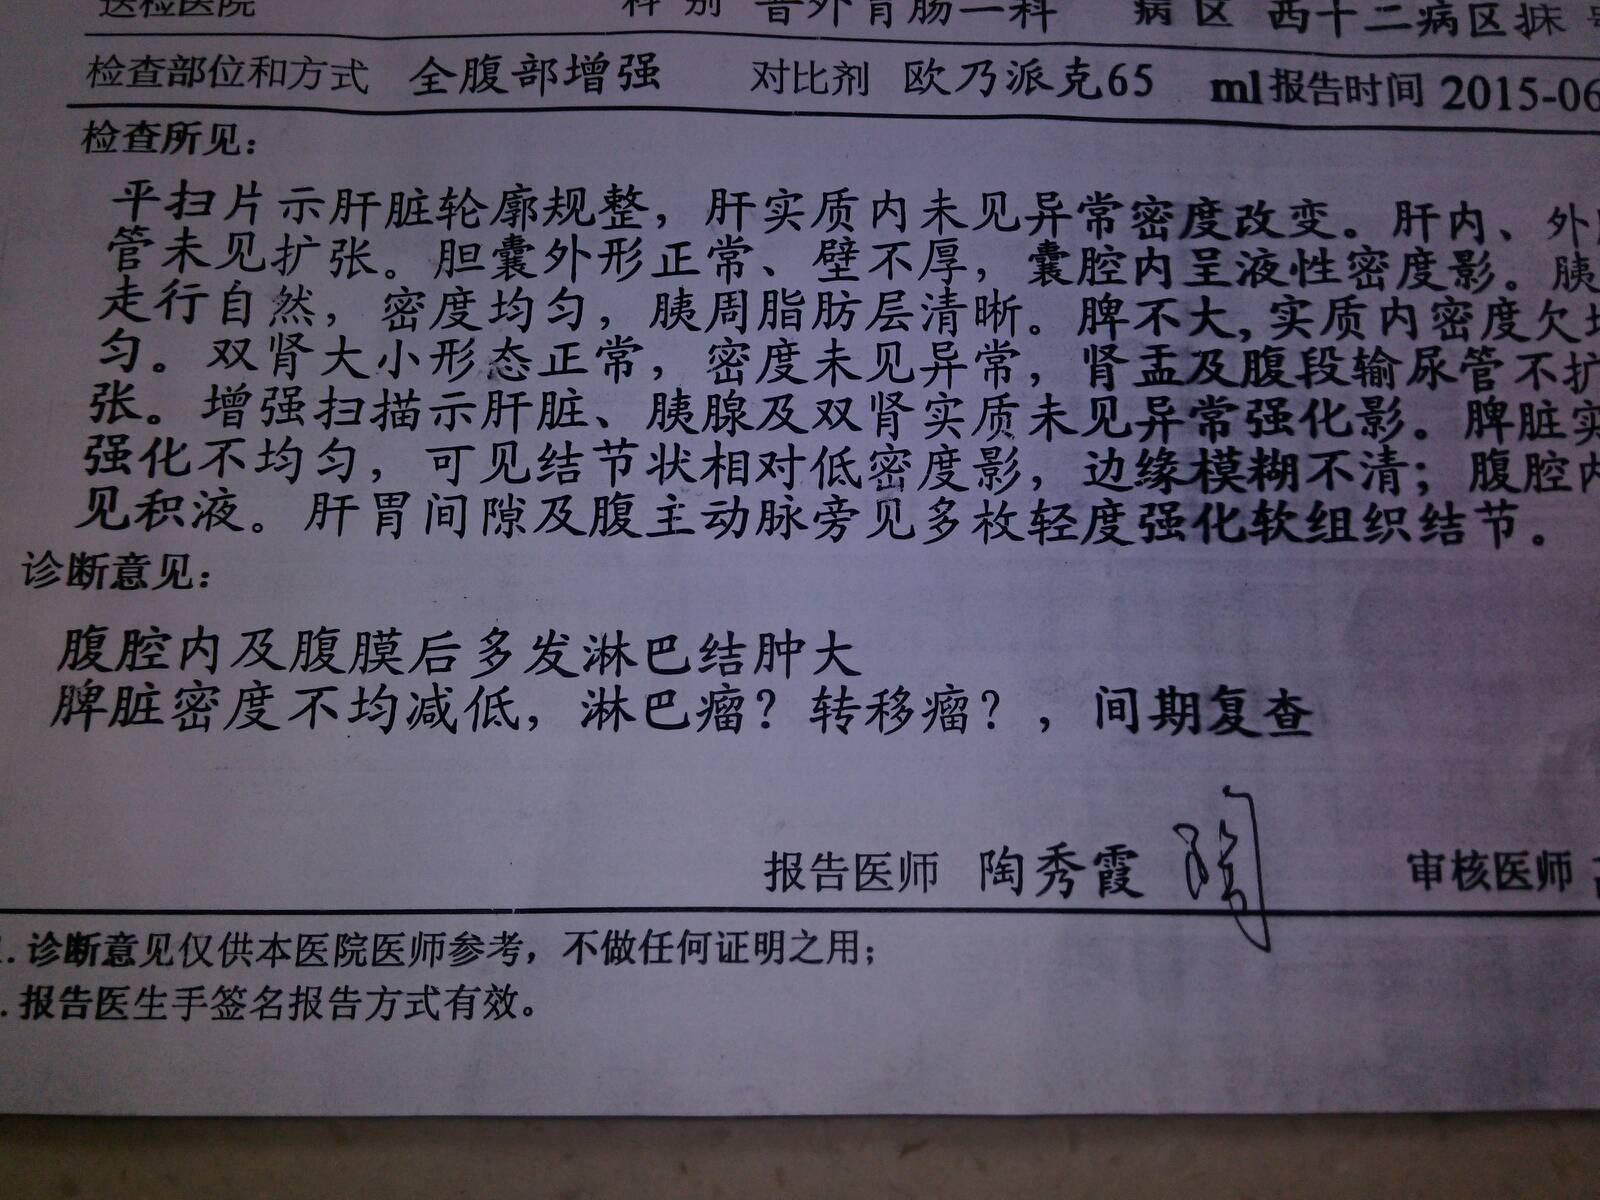 送检医院 科 别 普外胃肠一科 病 区 西十二病区 床
检查部位和方式 全腹部增强 对比剂 欧乃派克65 ml 报告时间 2015-06
检查所见：
平扫片示肝脏轮廓规整，肝实质内未见异常密度改变。肝内、外
管未见扩张。胆囊外形正常、壁不厚，囊腔内呈液性密度影。胰
走行自然，密度均匀，胰周脂肪层清晰。脾不大，实质内密度欠均
匀。双肾大小形态正常，密度未见异常，肾盂及腹段输尿管不扩
张。增强扫描示肝脏、胰腺及双肾实质未见异常强化影。脾脏实
强化不均匀，可见结节状相对低密度影，边缘模糊不清；腹腔内
见积液。肝胃间隙及腹主动脉旁见多枚轻度强化软组织结节。
诊断意见：
腹腔内及腹膜后多发淋巴结肿大
脾脏密度不均减低，淋巴瘤？转移瘤？，间期复查
报告医师 陶秀霞 陶 审核医师
.诊断意见仅供本医院医师参考，不做任何证明之用；
.报告医生手签名报告方式有效。